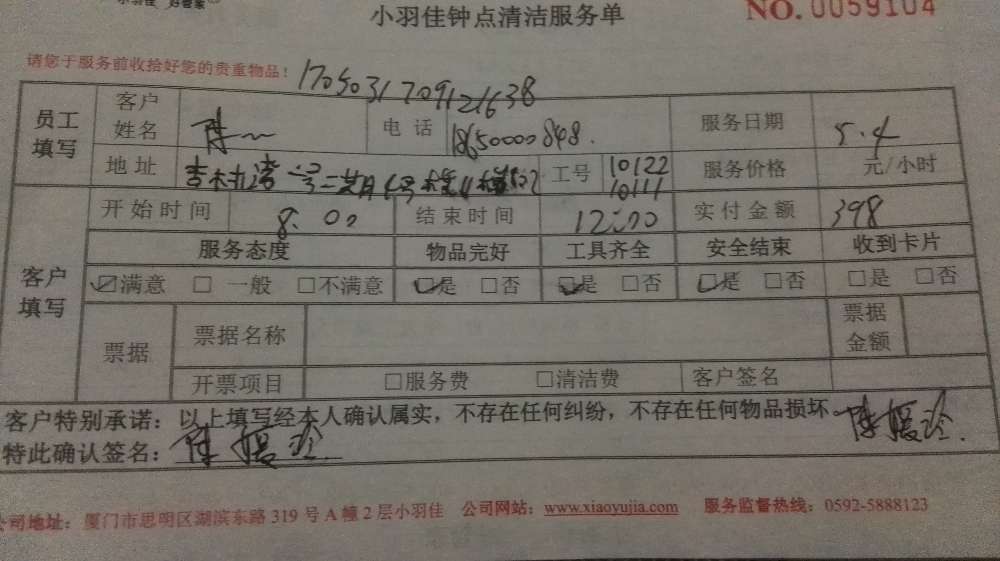 小羽佳 好管家
小羽佳钟点清洁服务单 NO. 0059104
请您于服务前收拾好您的贵重物品! 1705031709121638
员工填写 客户姓名 陈 电话 18650000848. 服务日期 5.4
地址 工号 10122 10111 服务价格 元/小时
开始时间 8:00 结束时间 12:00 实付金额 398
客户填写 服务态度 物品完好 工具齐全 安全结束 收到卡片
☑满意 □ 一般 □不满意 ☑是 □否 ☑是 □否 ☑是 □否 □是 □否
票据 票据名称 票据金额
开票项目 □服务费 □清洁费 客户签名
客户特别承诺：以上填写经本人确认属实，不存在任何纠纷，不存在任何物品损坏
特此确认签名：陈媛玲 陈媛玲
公司地址：厦门市思明区湖滨东路 319 号 A 幢 2 层小羽佳 公司网站：www.xiaoyujia.com 服务监督热线：0592-5888123